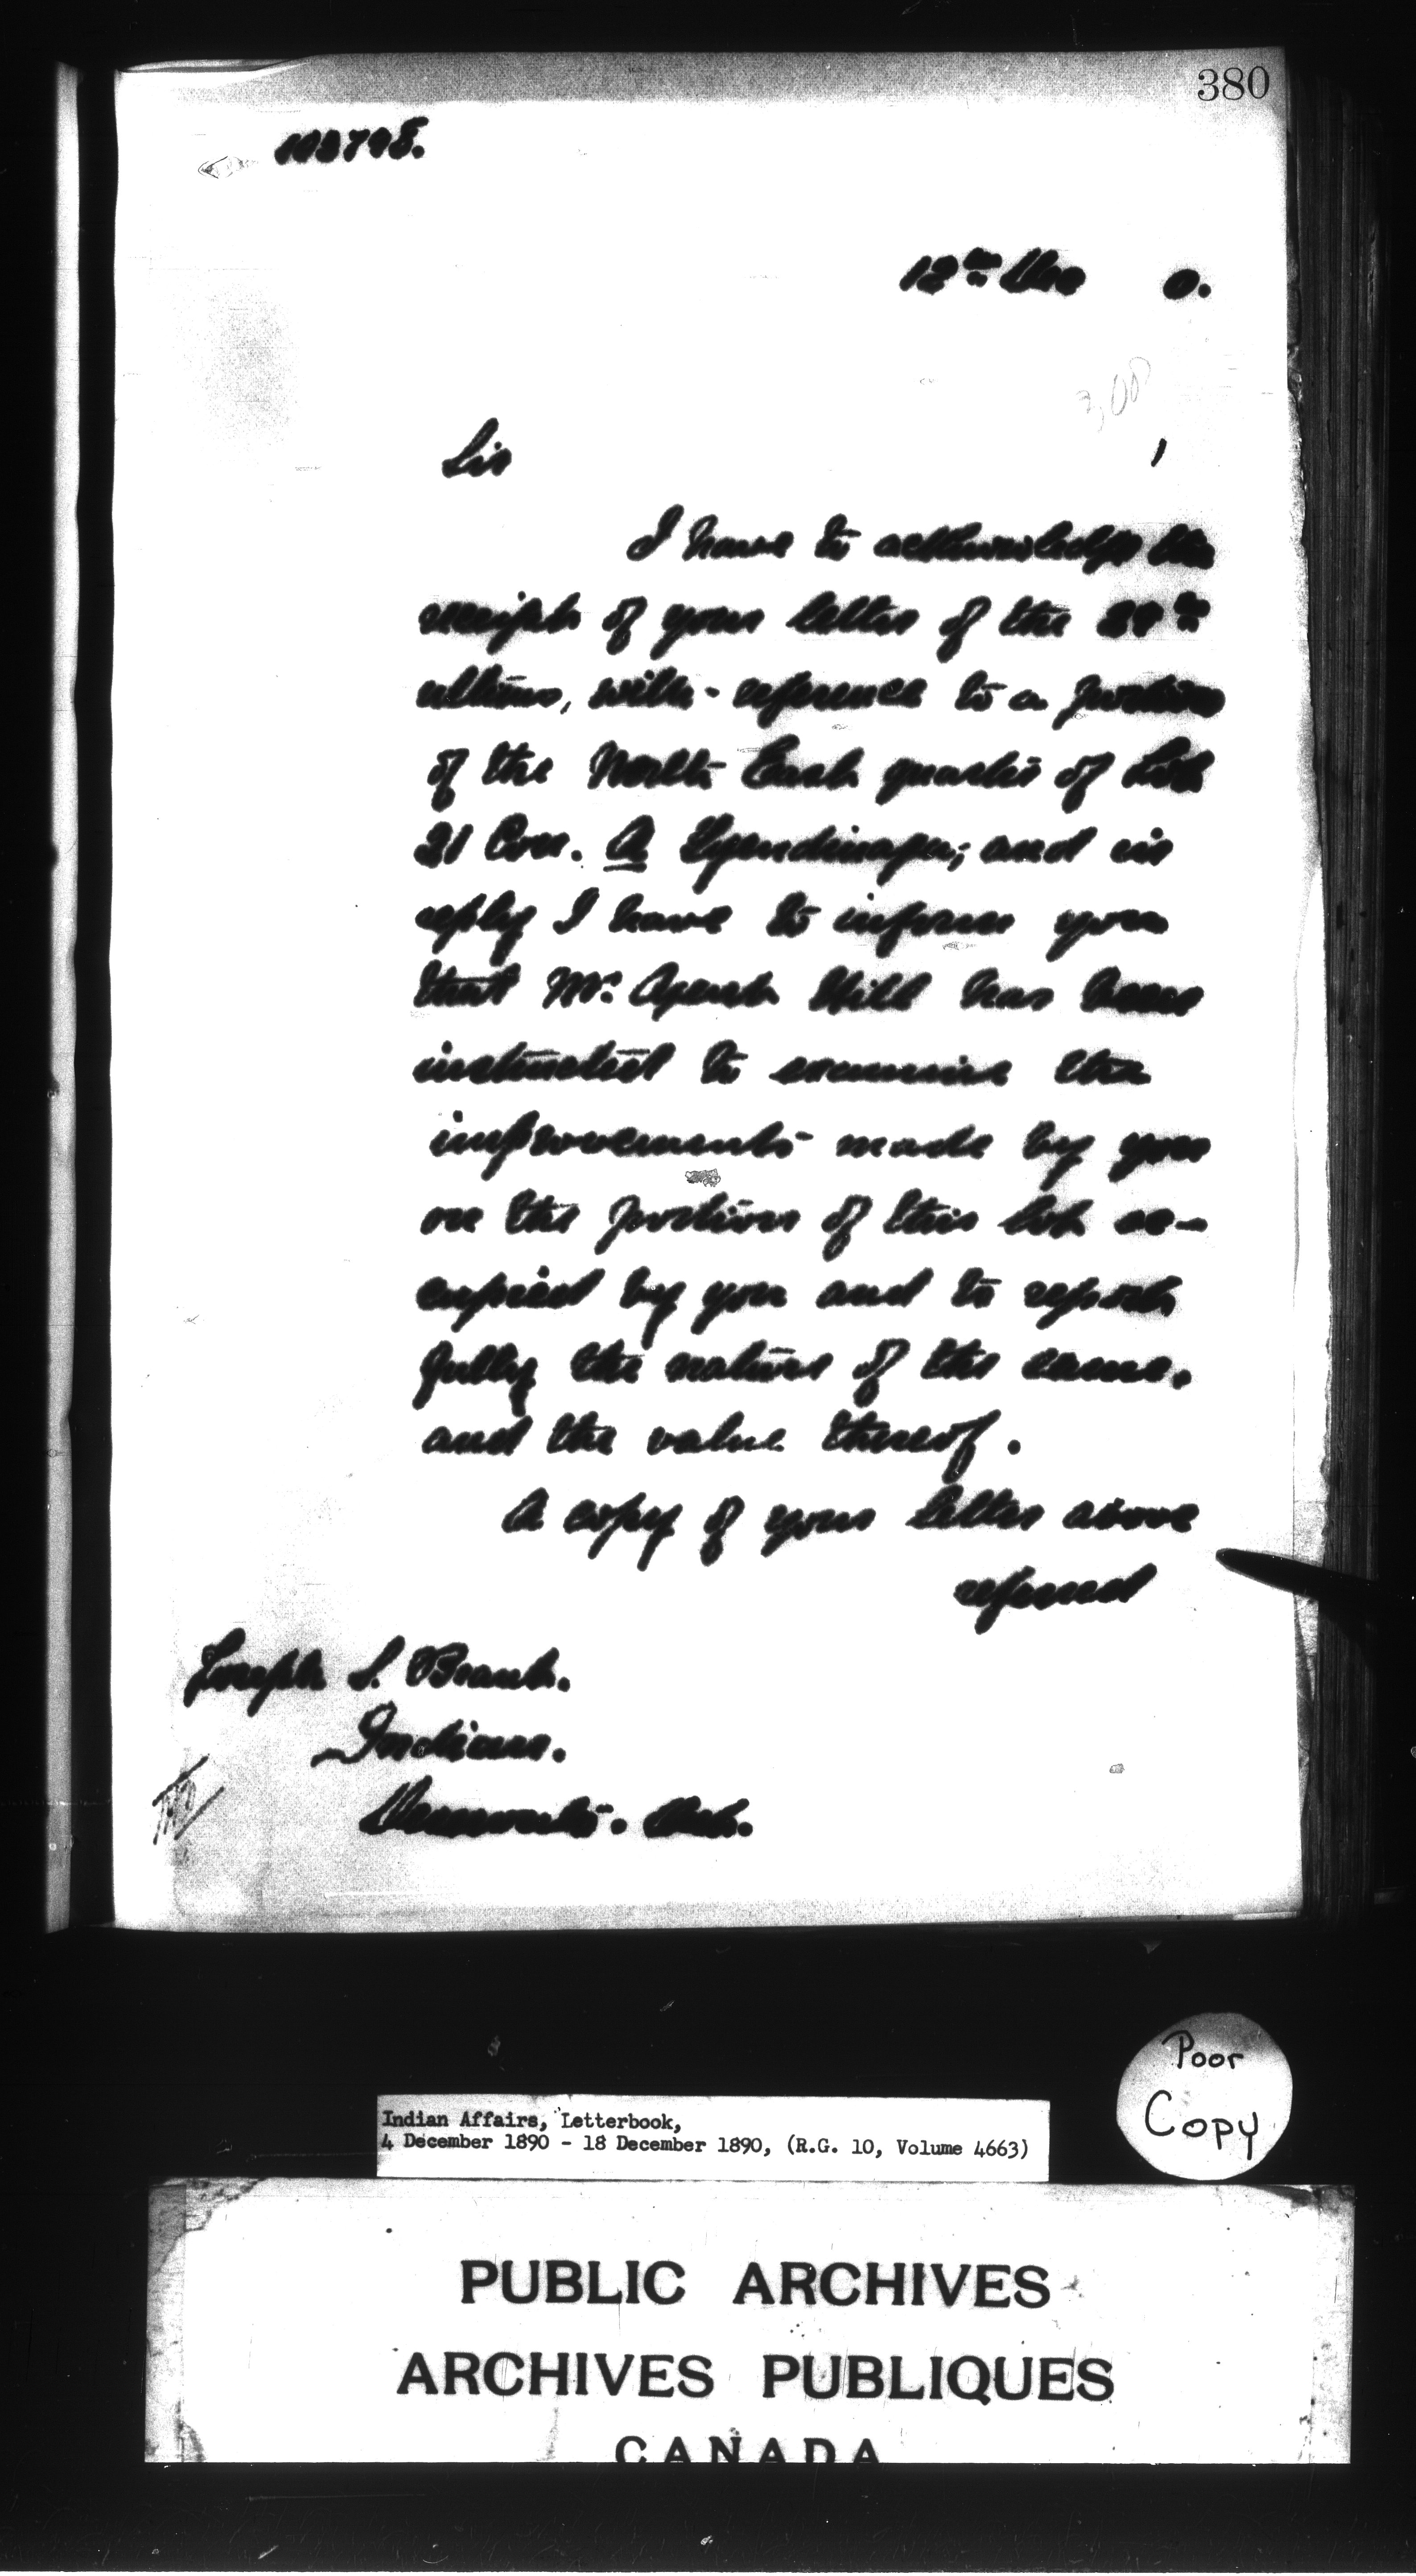 380
18th Dec 0.
Sir
I have to acknowledge the
receipt of your letter of the
ultimo, with reference to a portion
of the North East quarter of Lot
21 Con. A Tyendinaga; and in
reply I have to inform you
that Mr. Agent Hill has been
instructed to examine the
improvements made by you
on the portion of this lot oc-
cupied by you and to report
fully the nature of the same,
and the value thereof.
A copy of your letter above
referred
Joseph S. Brant.
Indian.
Deseronto. Ont.
Poor
Copy
Indian Affairs, Letterbook,
4 December 1890 - 18 December 1890, (R.G. 10, Volume 4663)
PUBLIC ARCHIVES
ARCHIVES PUBLIQUES
CANADA